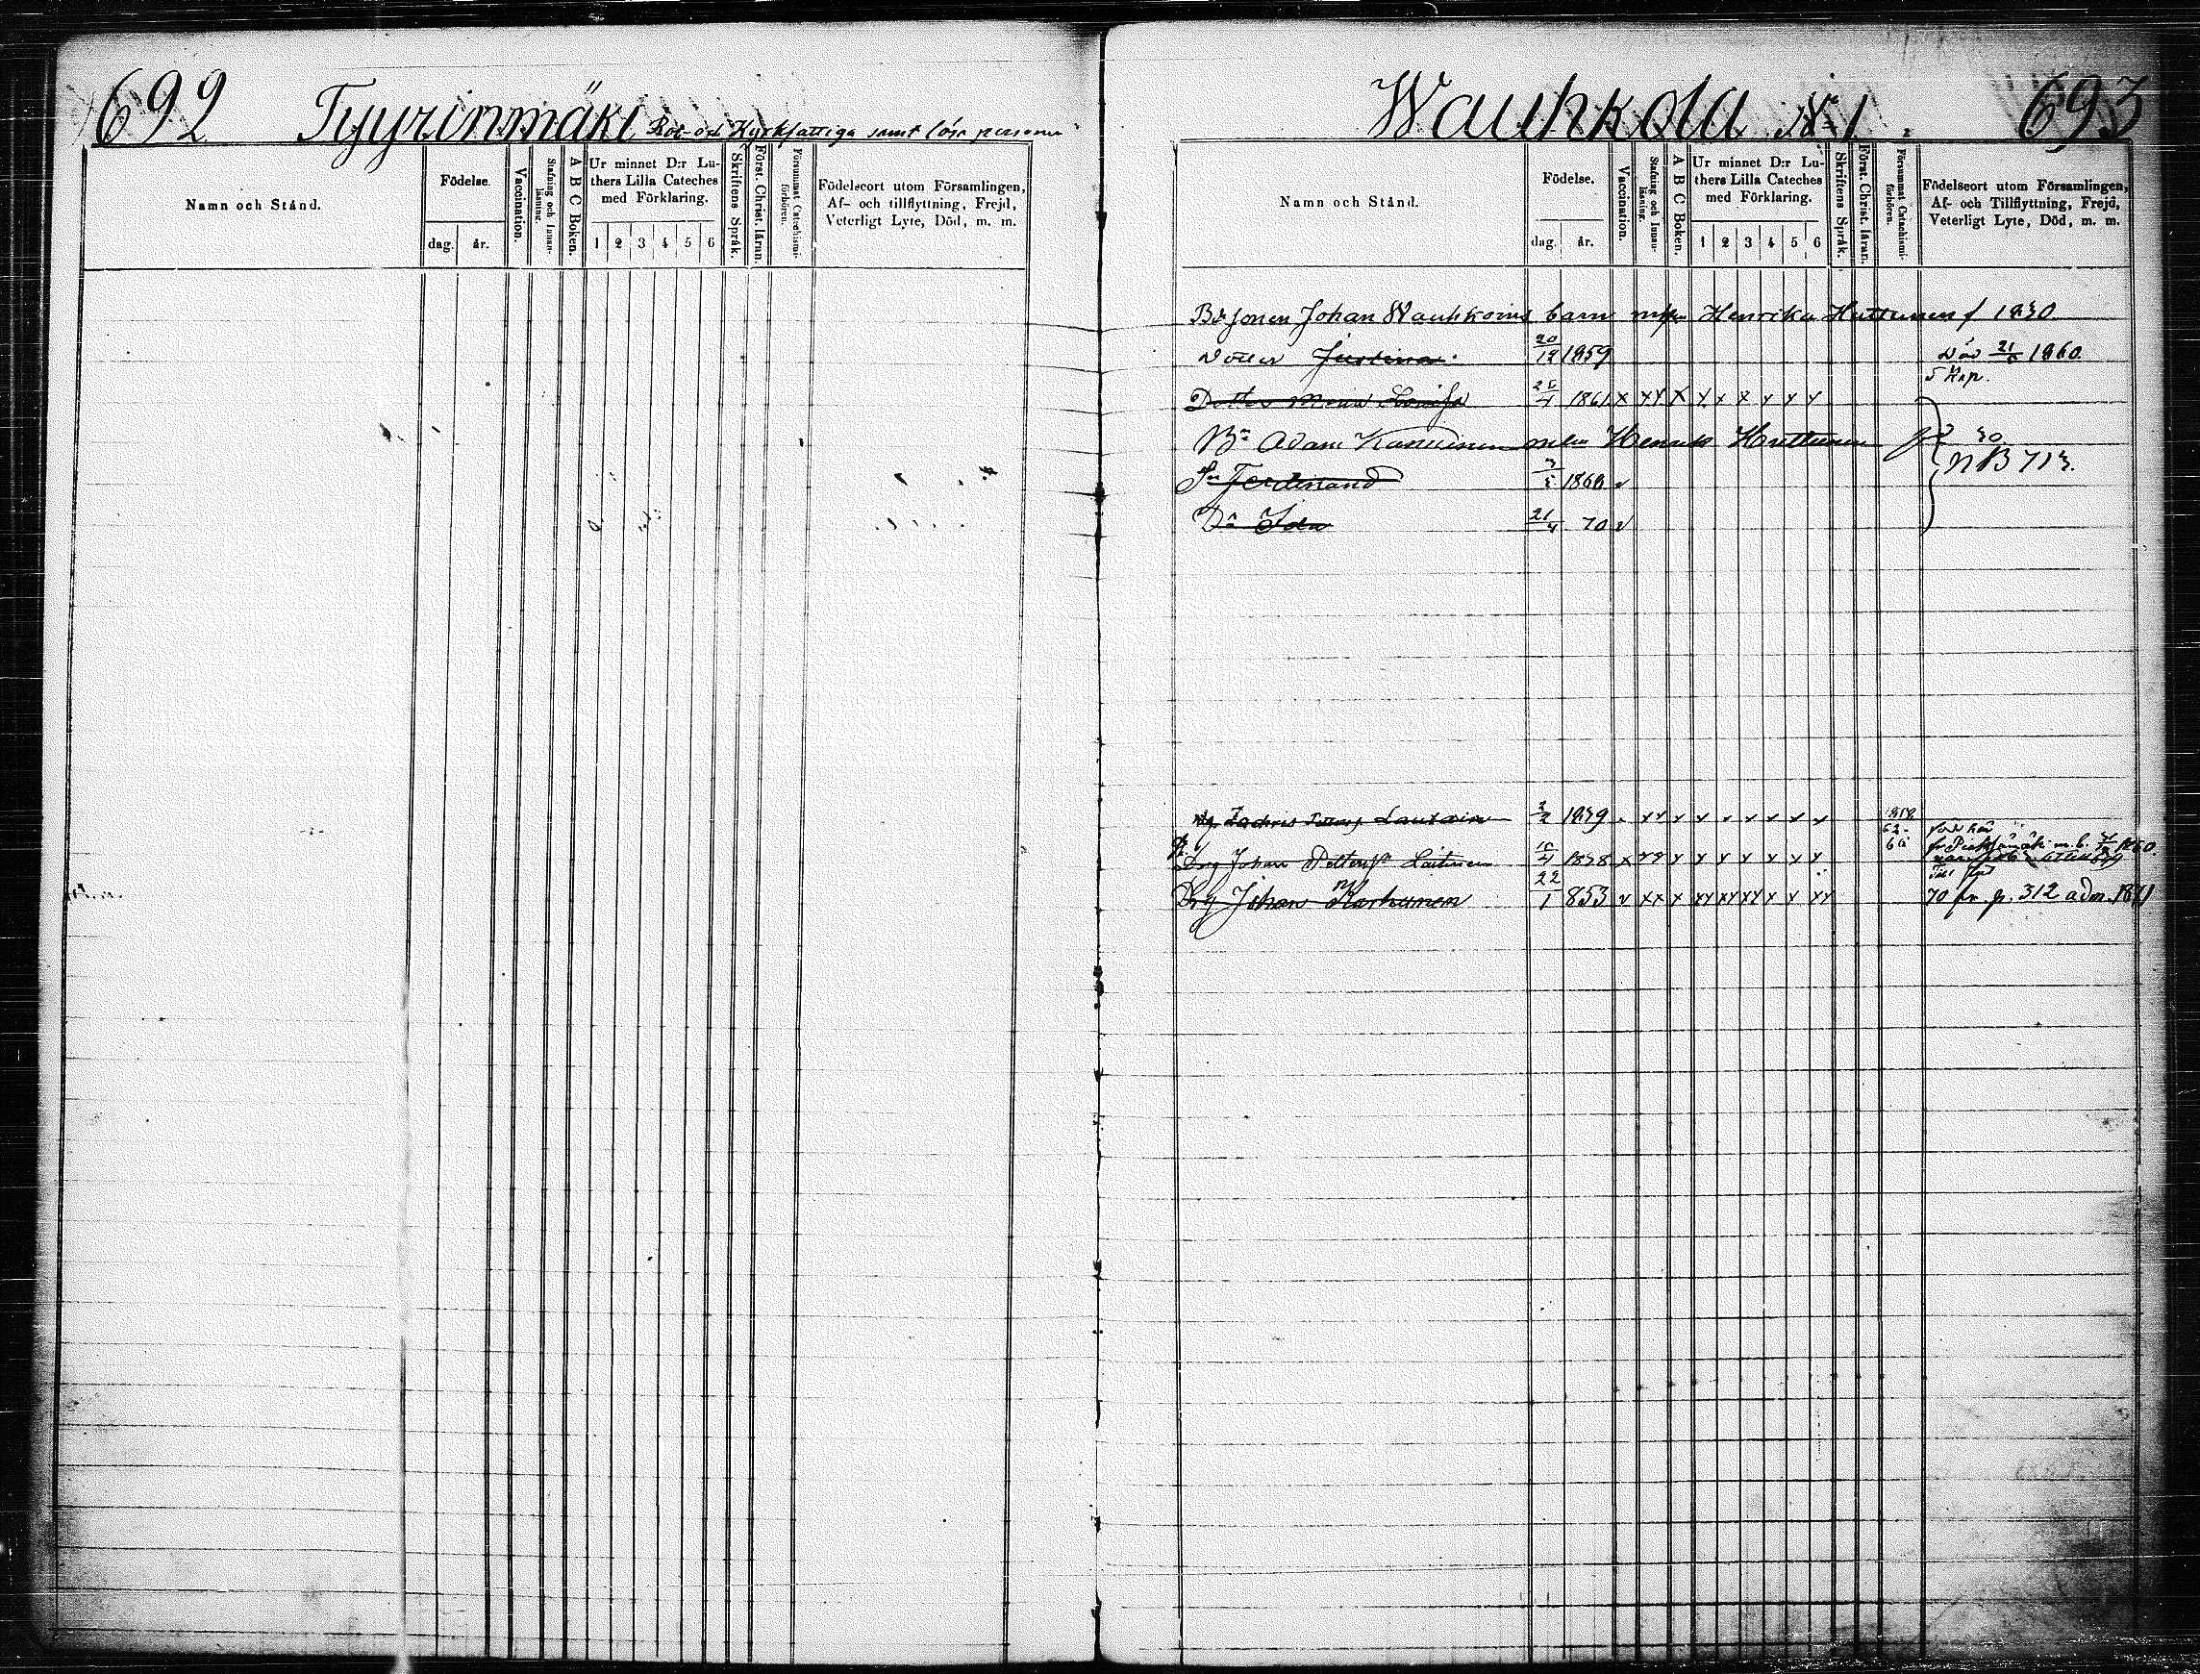 692 Tyyrinmäki Rot- och Kyrkfattiga samt löse personer
Namn och Stånd.
Födelse.
dag. år.
Vaccination.
Stafning och Innan-läsning.
A B C Boken.
Ur minnet D:r Lu-
thers Lilla Cateches
med Förklaring.
1 2 3 4 5 6
Skriftens Språk.
Först. Christ. läran.
Försummat Catechismi-förhören.
Födelseort utom Församlingen,
Af- och tillflyttning, Frejd,
Veterligt Lyte, Död, m. m.
Wauhkola № 1 693
Namn och Stånd.
Födelse.
dag. år.
Vaccination.
Stafning och Innan-läsning.
A B C Boken.
Ur minnet D:r Lu-
thers Lilla Cateches
med Förklaring.
1 2 3 4 5 6
Skriftens Språk.
Först. Christ. läran.
Försummat Catechismi-förhören.
Födelseort utom Församlingen,
Af- och Tillflyttning, Frejd,
Veterligt Lyte, Död, m. m.
Johan Wauhkonens barn Henrika Huttunen f 1830
Dotter Justina 20/12 1859 Död 1860.
5 Kop.
Dotter Maria Lovisa 1861 x xx x x x x x x x
Bn Adam Kanninen Henrik Huttunen
Sn Ferdinand 1860 v NB 713.
Dr Ida 21/4 70 v
Zachris Lautain 2/2 1839 xx x x x x x x x
Drg Johan Laitinen 1838 x xx x x x x x x x 62- fr Pieksämäki m. b. 1860.
Drg Johan Karhunen 22/1 853 v xx x xx xx xx x x xx 70 fr. p. 312 adm. 1871